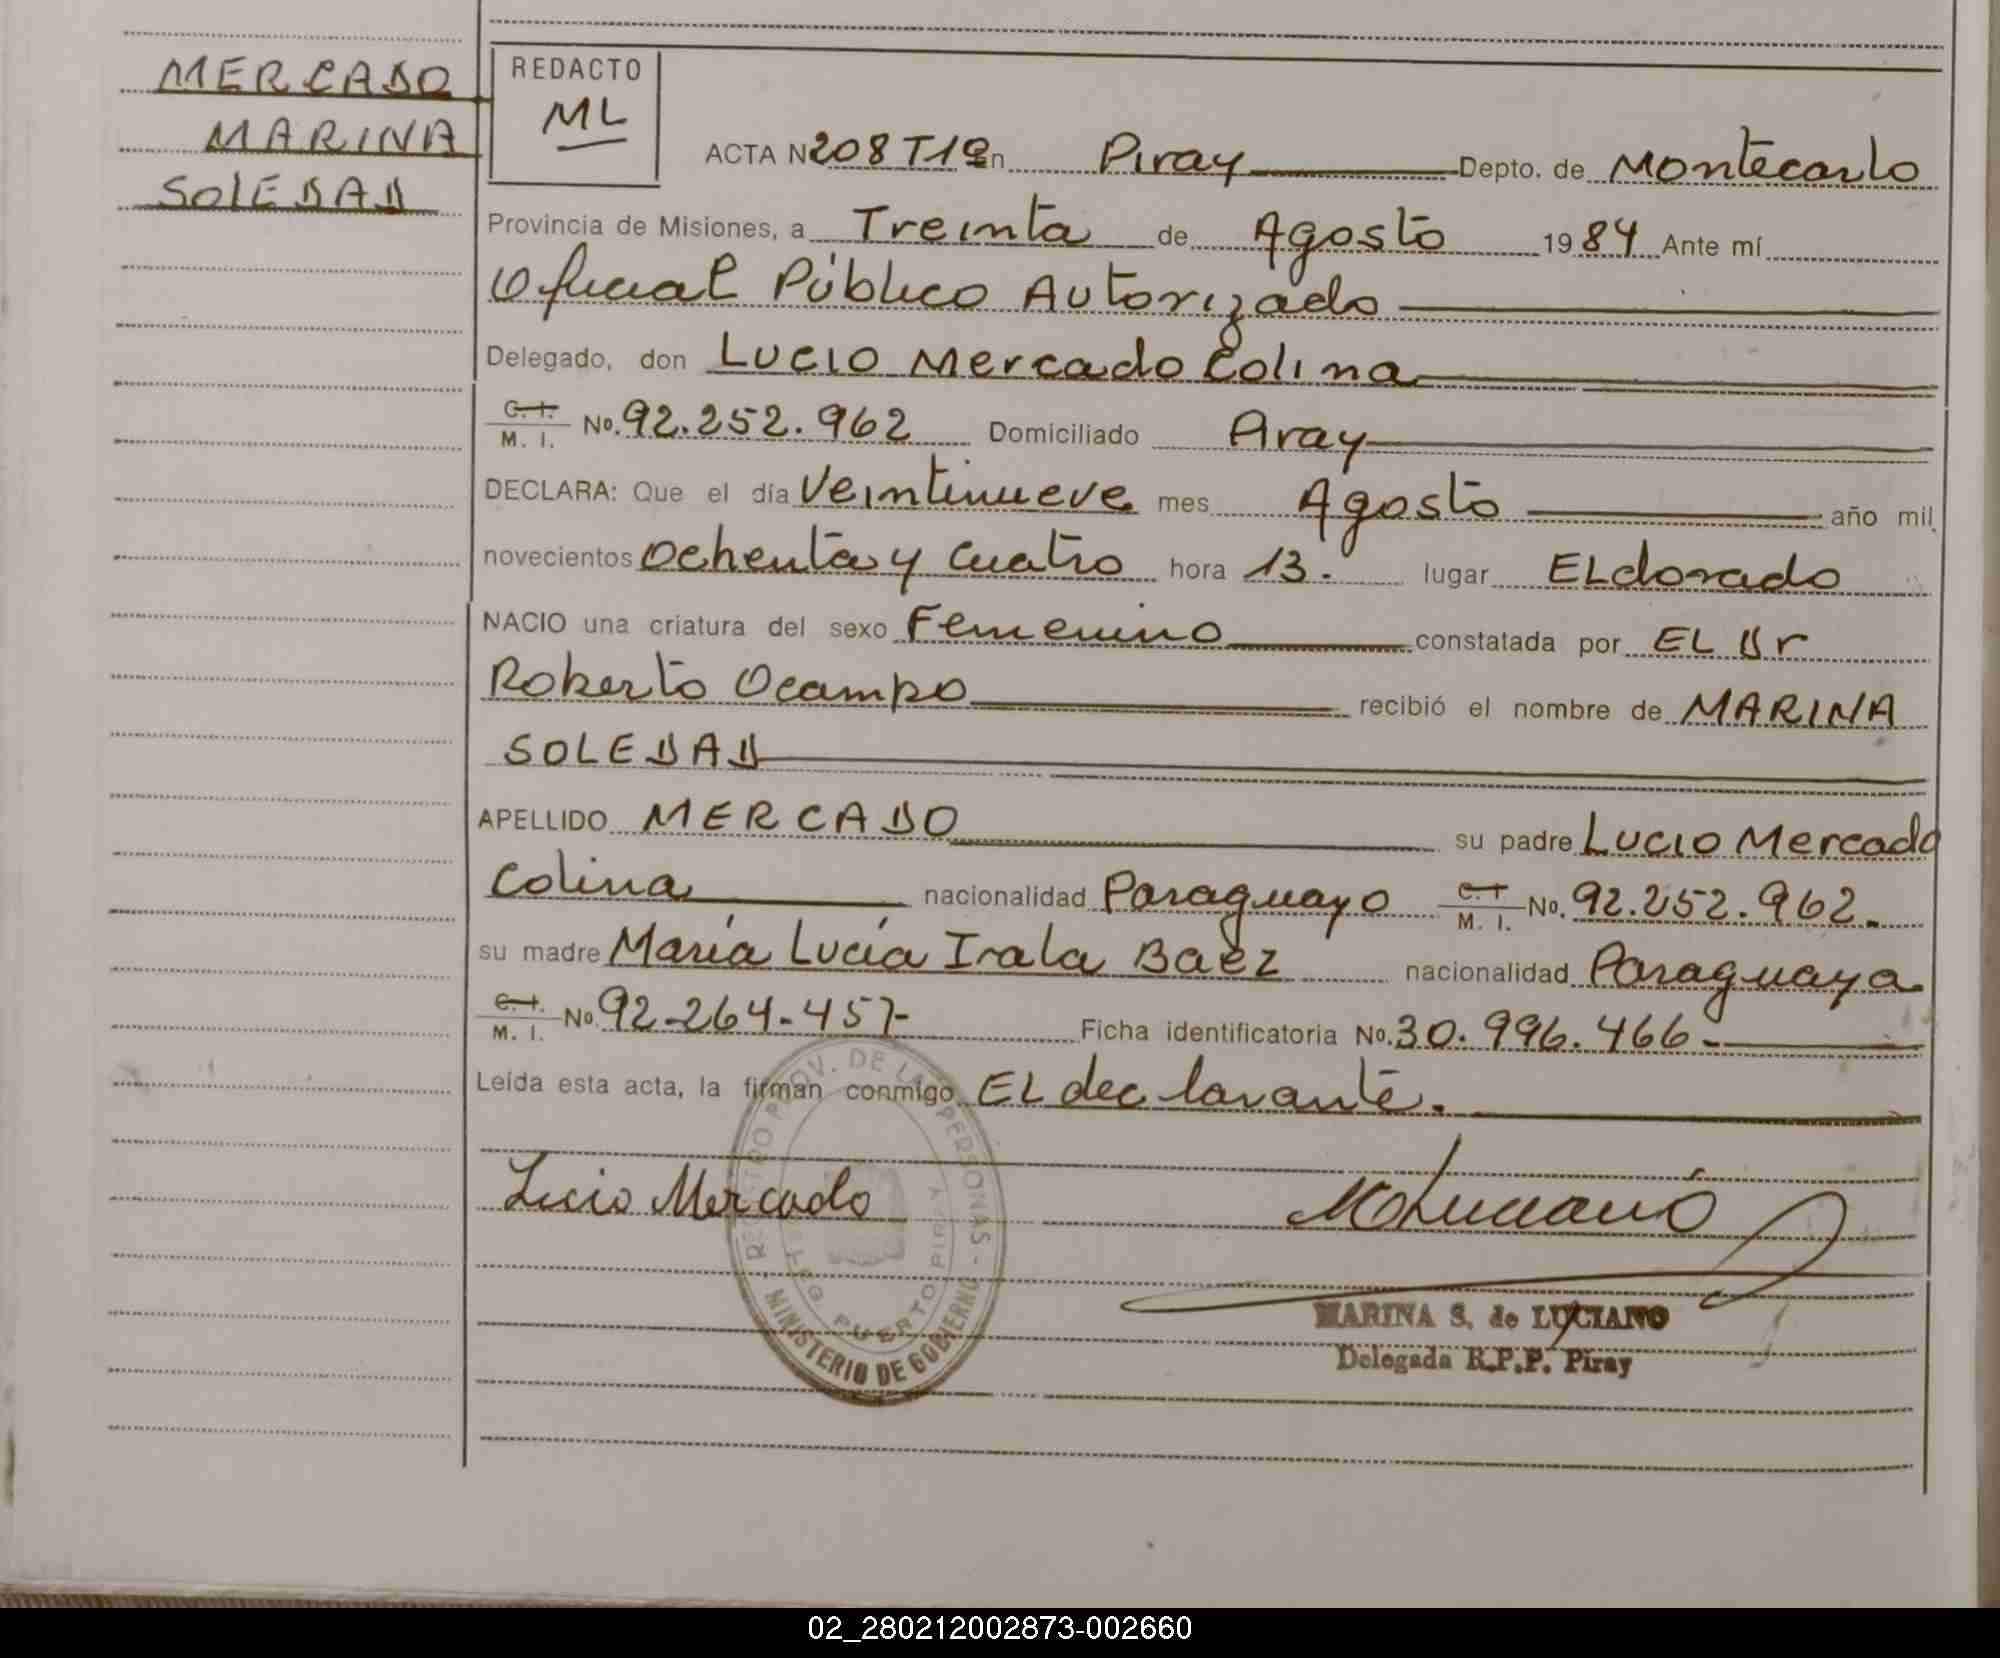 MERCADO
MARINA
SOLEDAD
REDACTO
ML
ACTA N 208 T1º en Piray Depto. de Montecarlo
Provincia de Misiones, a Treinta de Agosto 1984 Ante mí
Oficial Público Autorizado
Delegado, don Lucio Mercado Colina
C. I.
M. I. No. 92.252.962 Domiciliado Piray
DECLARA: Que el día Veintinueve mes Agosto año mil
novecientos Ochenta y Cuatro hora 13. lugar ELdorado
NACIO una criatura del sexo Femenino constatada por EL Dr
Roberto Ocampo recibió el nombre de MARINA
SOLEDAD
APELLIDO MERCADO su padre Lucio Mercado
Colina nacionalidad Paraguayo C. I.
M. I. No. 92.252.962.
su madre María Lucía Irala Baez nacionalidad Paraguaya
C. I.
M. I. No. 92-264-457- Ficha identificatoria No. 30.996.466-
Leída esta acta, la firman conmigo EL declarante.
Lucio Mercado
REGISTRO PROV. DE LAS PERSONAS - MINISTERIO DE GOBIERNO
DELEG. PUERTO PIRAY
MARINA S. de LUCIANO
Delegada R.P.P. Piray
02_280212002873-002660